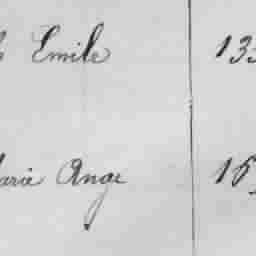 Emile 133
Marie Ange 15